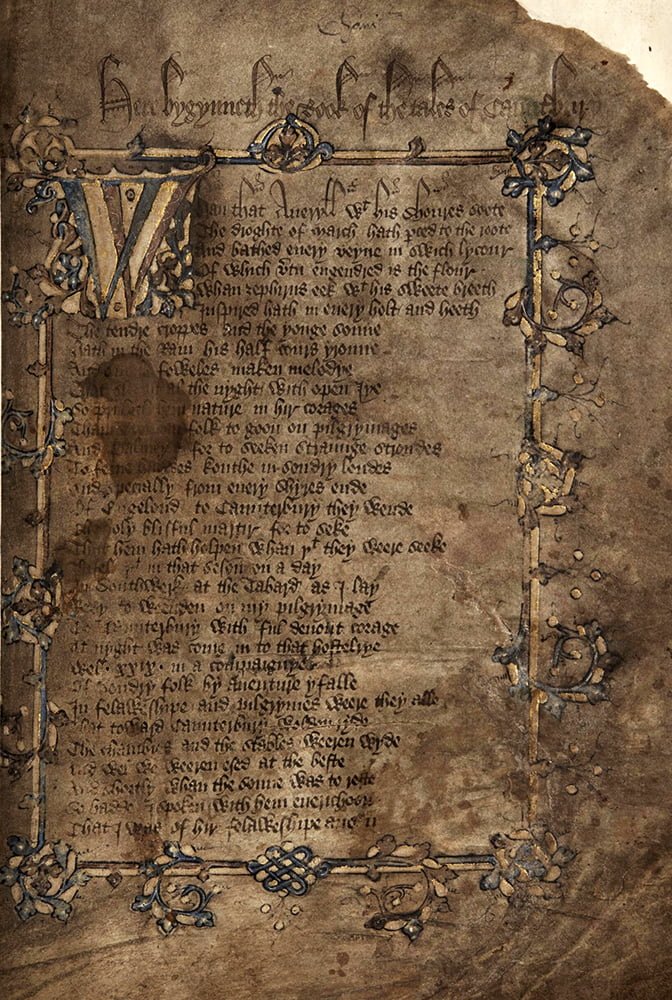 Here bygynneth the Book of the tales of Caunt
Whan that Aueryll wt his shoures soote
The droghte of march hath pced to the roote
And bathed euery veyne in swich lycour
Of which vtu engendred is the flour
Whan zephirus eek wt his sweete breeth
Inspired hath in euery holt and heeth
The tendre croppes and the yonge sonne
Hath in the Ram his half cours yronne
And foweles maken melodye
al the nyght with open Iye
So hem nature in hir corages
folk to goon on pilgrymages
And for to seeken straunge strondes
To kouthe in sondry londes
And specially from euery shyres ende
Of Engelond to Caunterbury they wende
The holy blisful martir for to seke
That hem hath holpen whan yt they weere seeke
in that seson on a day
In Southwerk at the Tabard as I lay
Redy to wenden on my pilgrymage
To Caunterbury with ful deuout corage
At nyght was come in to that hostelrye
Wel xxix in a compaignye
Of sondry folk by auenture yfalle
In felaweshipe and pilgrymes weere they alle
That toward Caunterbury wolden ryde
The chambres and the stables weeren wyde
And wel we weeren esed at the beste
And shortly whan the sonne was to reste
So hadde I spoken with hem euerichoon
That I was of hir felaweshipe